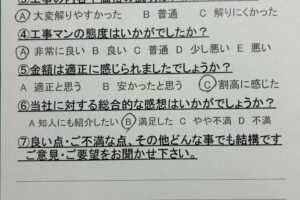 Ⓐ 大変解りやすかった B 普通 C 解りにくかった
④工事マンの態度はいかがでしたか？
Ⓐ 非常に良い B 良い C 普通 D 少し悪い E 悪い
⑤金額は適正に感じられましたでしょうか？
A 適正と思う B 安かったと思う Ⓒ 割高に感じた
⑥当社に対する総合的な感想はいかがでしょうか？
A 知人にも紹介したい Ⓑ 満足した C やや不満 D 不満
⑦良い点・ご不満な点、その他どんな事でも結構です
ご意見・ご要望をお聞かせ下さい。